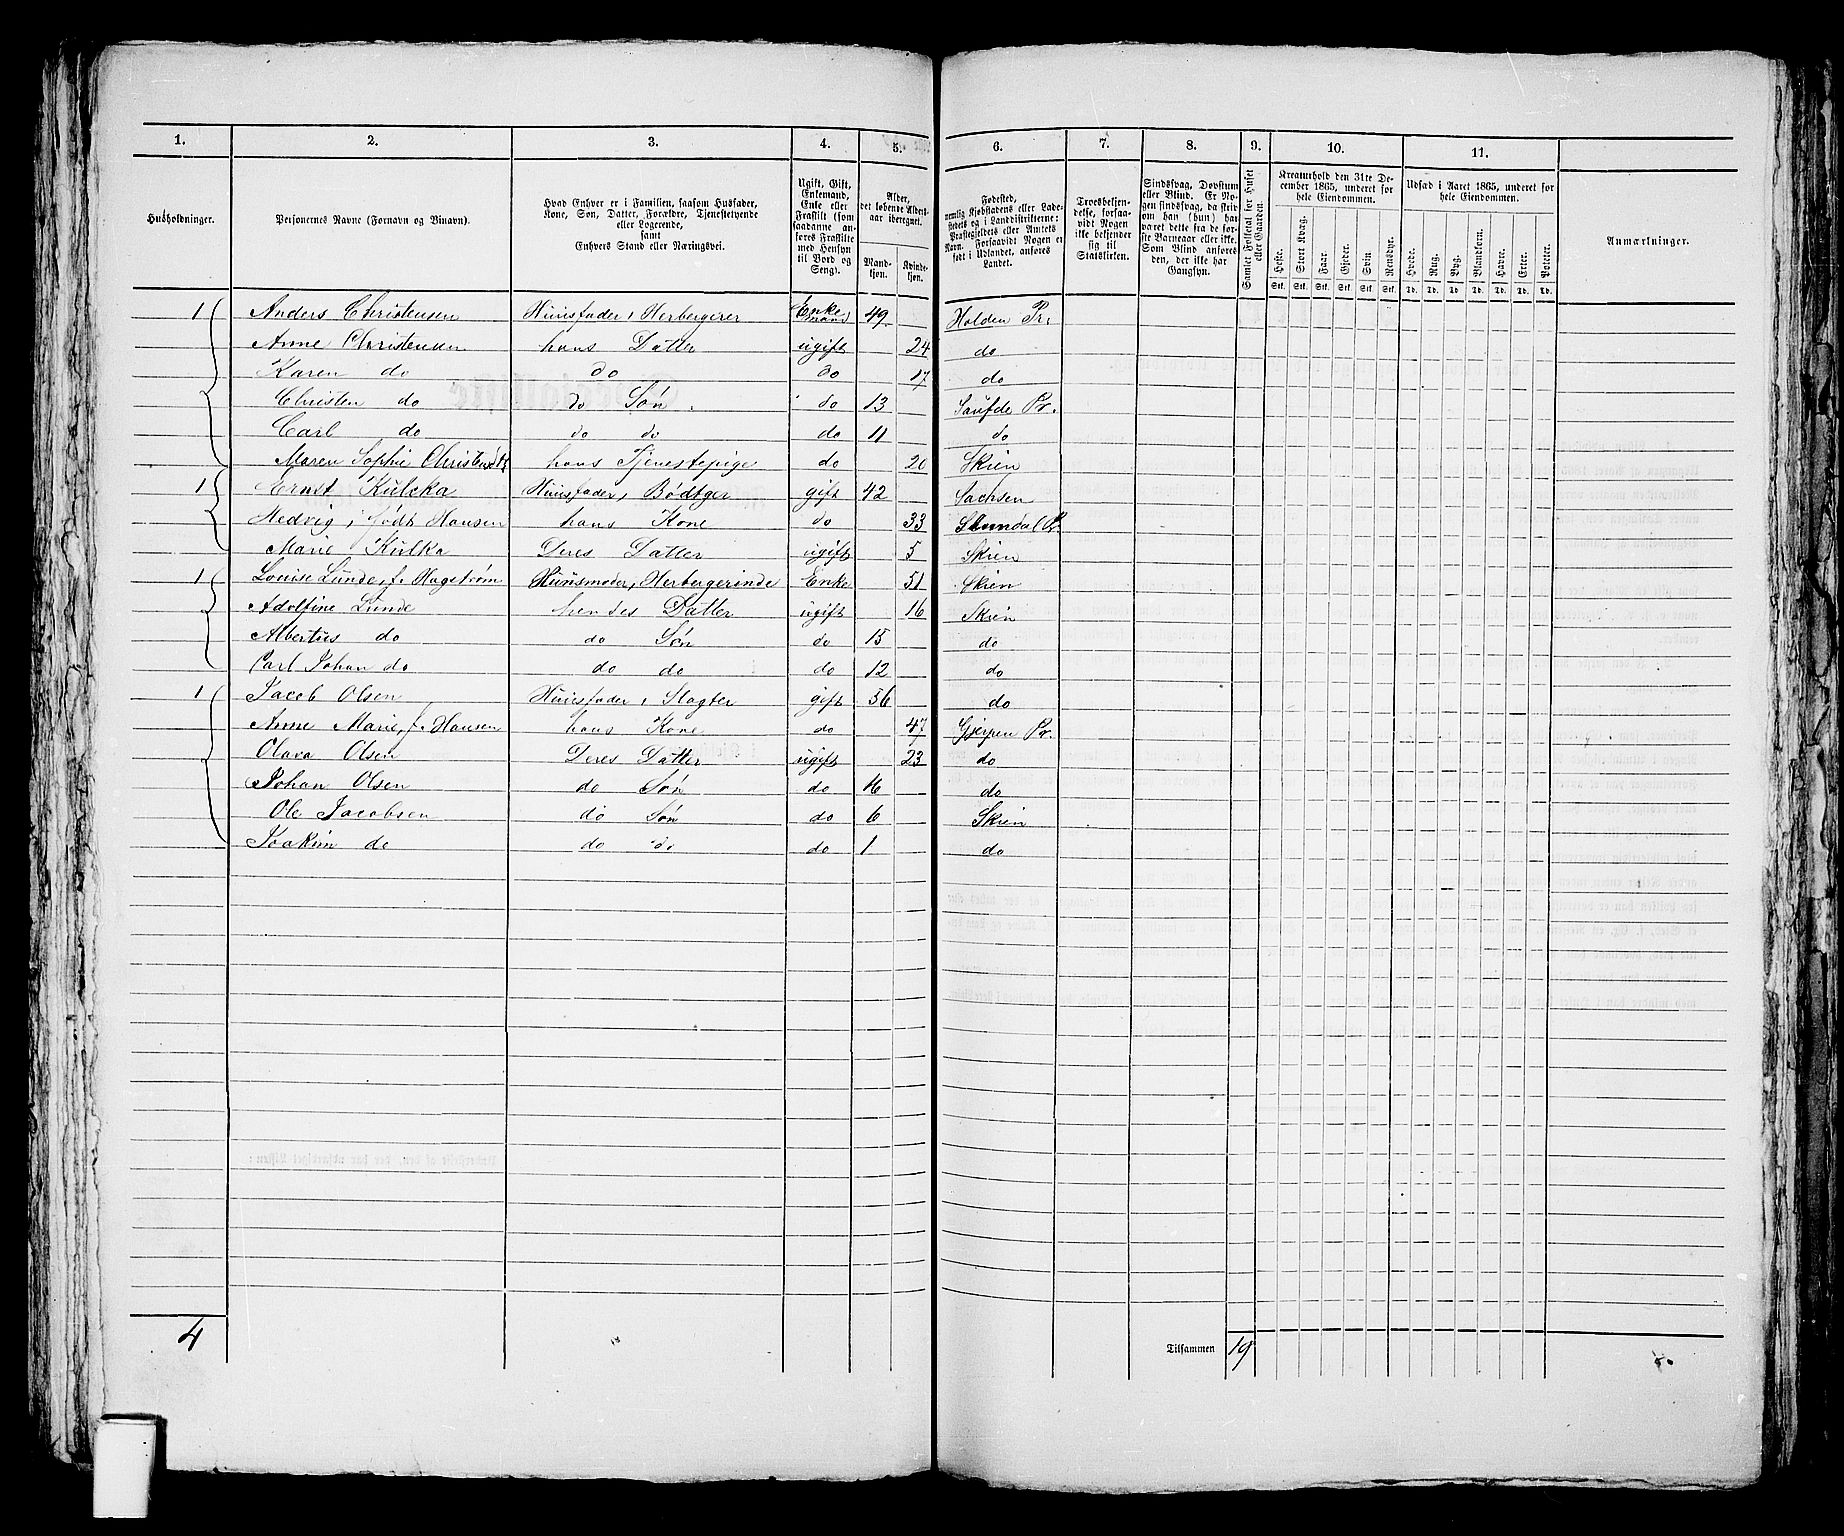 1. 2. 3. 4. 5. 6. 7. 8. 9. 10. 11.
Husholdninger.
Personernes Navne (Fornavn og Binavn).
Hvad Enhver er i Familien, saasom Husfader,
Kone, Søn, Datter, Forældre, Tjenestetyende
eller Logerende,
samt
Enhvers Stand eller Næringsvei.
Ugift, Gift,
Enkemand,
Enke eller
Fraskilt (som
saadanne anføres
Fraskilte
med Hensyn
til Bord og
Seng).
Alder,
det løbende Aldersaar
iberegnet.
Mandkjøn.
Kvindekjøn.
Fødested,
nemlig Kjøbstadens eller Ladestedets
og i Landdistrikterne:
Præstegjeldets eller Amtets
Navn. Forsaavidt Nogen er
født i Udlandet, anføres
Landet.
Troesbekjendelse,
forsaavidt
Nogen
ikke bekjender
sig til
Statskirken.
Sindssvag, Døvstum
eller Blind. Er Nogen
sindssvag, da skrives
om han (hun) har
været dette fra de første
Barneaar eller ikke.
Som Blind anføres
den, der ikke har
Gangsyn.
Samlet Folketal for Huset
eller Gaarden.
Kreaturhold den 31te December
1865, underet for
hele Eiendommen.
Heste. Stort Kvæg. Faar. Gjeder. Svin. Rensdyr.
Stk. Stk. Stk. Stk. Stk. Stk.
Udsæd i Aaret 1865, underet for
hele Eiendommen.
Hvede. Rug. Byg. Blandkorn. Havre. Erter. Poteter.
Td. Td. Td. Td. Td. Td. Td.
Anmærkninger.
1 Anders Christensen Huusfader, Herbergerer Enkemand 49 Holden Pr:
Anne Christensen hans Datter ugift 24 do
Karen do do do 17 do
Christen do do Søn do 13 Saufde Pr.
Carl do do do do 11 do
Maren Sophie hans Tjenestepige do 20 Skien
1 Ernst Kulcka Huusfader, Bødtger gift 42 Sachsen
Hedvig, født Hansen hans Kone do 33 Pr.
Marie Kulka Deres Datter ugift 5 Skien
1 Louise Lunde, f. Hagstrøm Huusmoder, Herbergerinde Enke 51 Skien
Adolfine Lunde hendes Datter ugift 16 Skien
Albertus do do Søn do 15 do
Carl Johan do do do do 12 do
1 Jacob Olsen Huusfader, Slagter gift 56 do
Anne Marie, f. Hansen hans Kone do 47 Gjerpen Pr.
Olava Olsen Deres Datter ugift 23 do
Johan Olsen do Søn do 16 do
Ole Jacobsen do Søn do 6 Skien
Joakim do do do do 1 do
4 Tilsammen 19